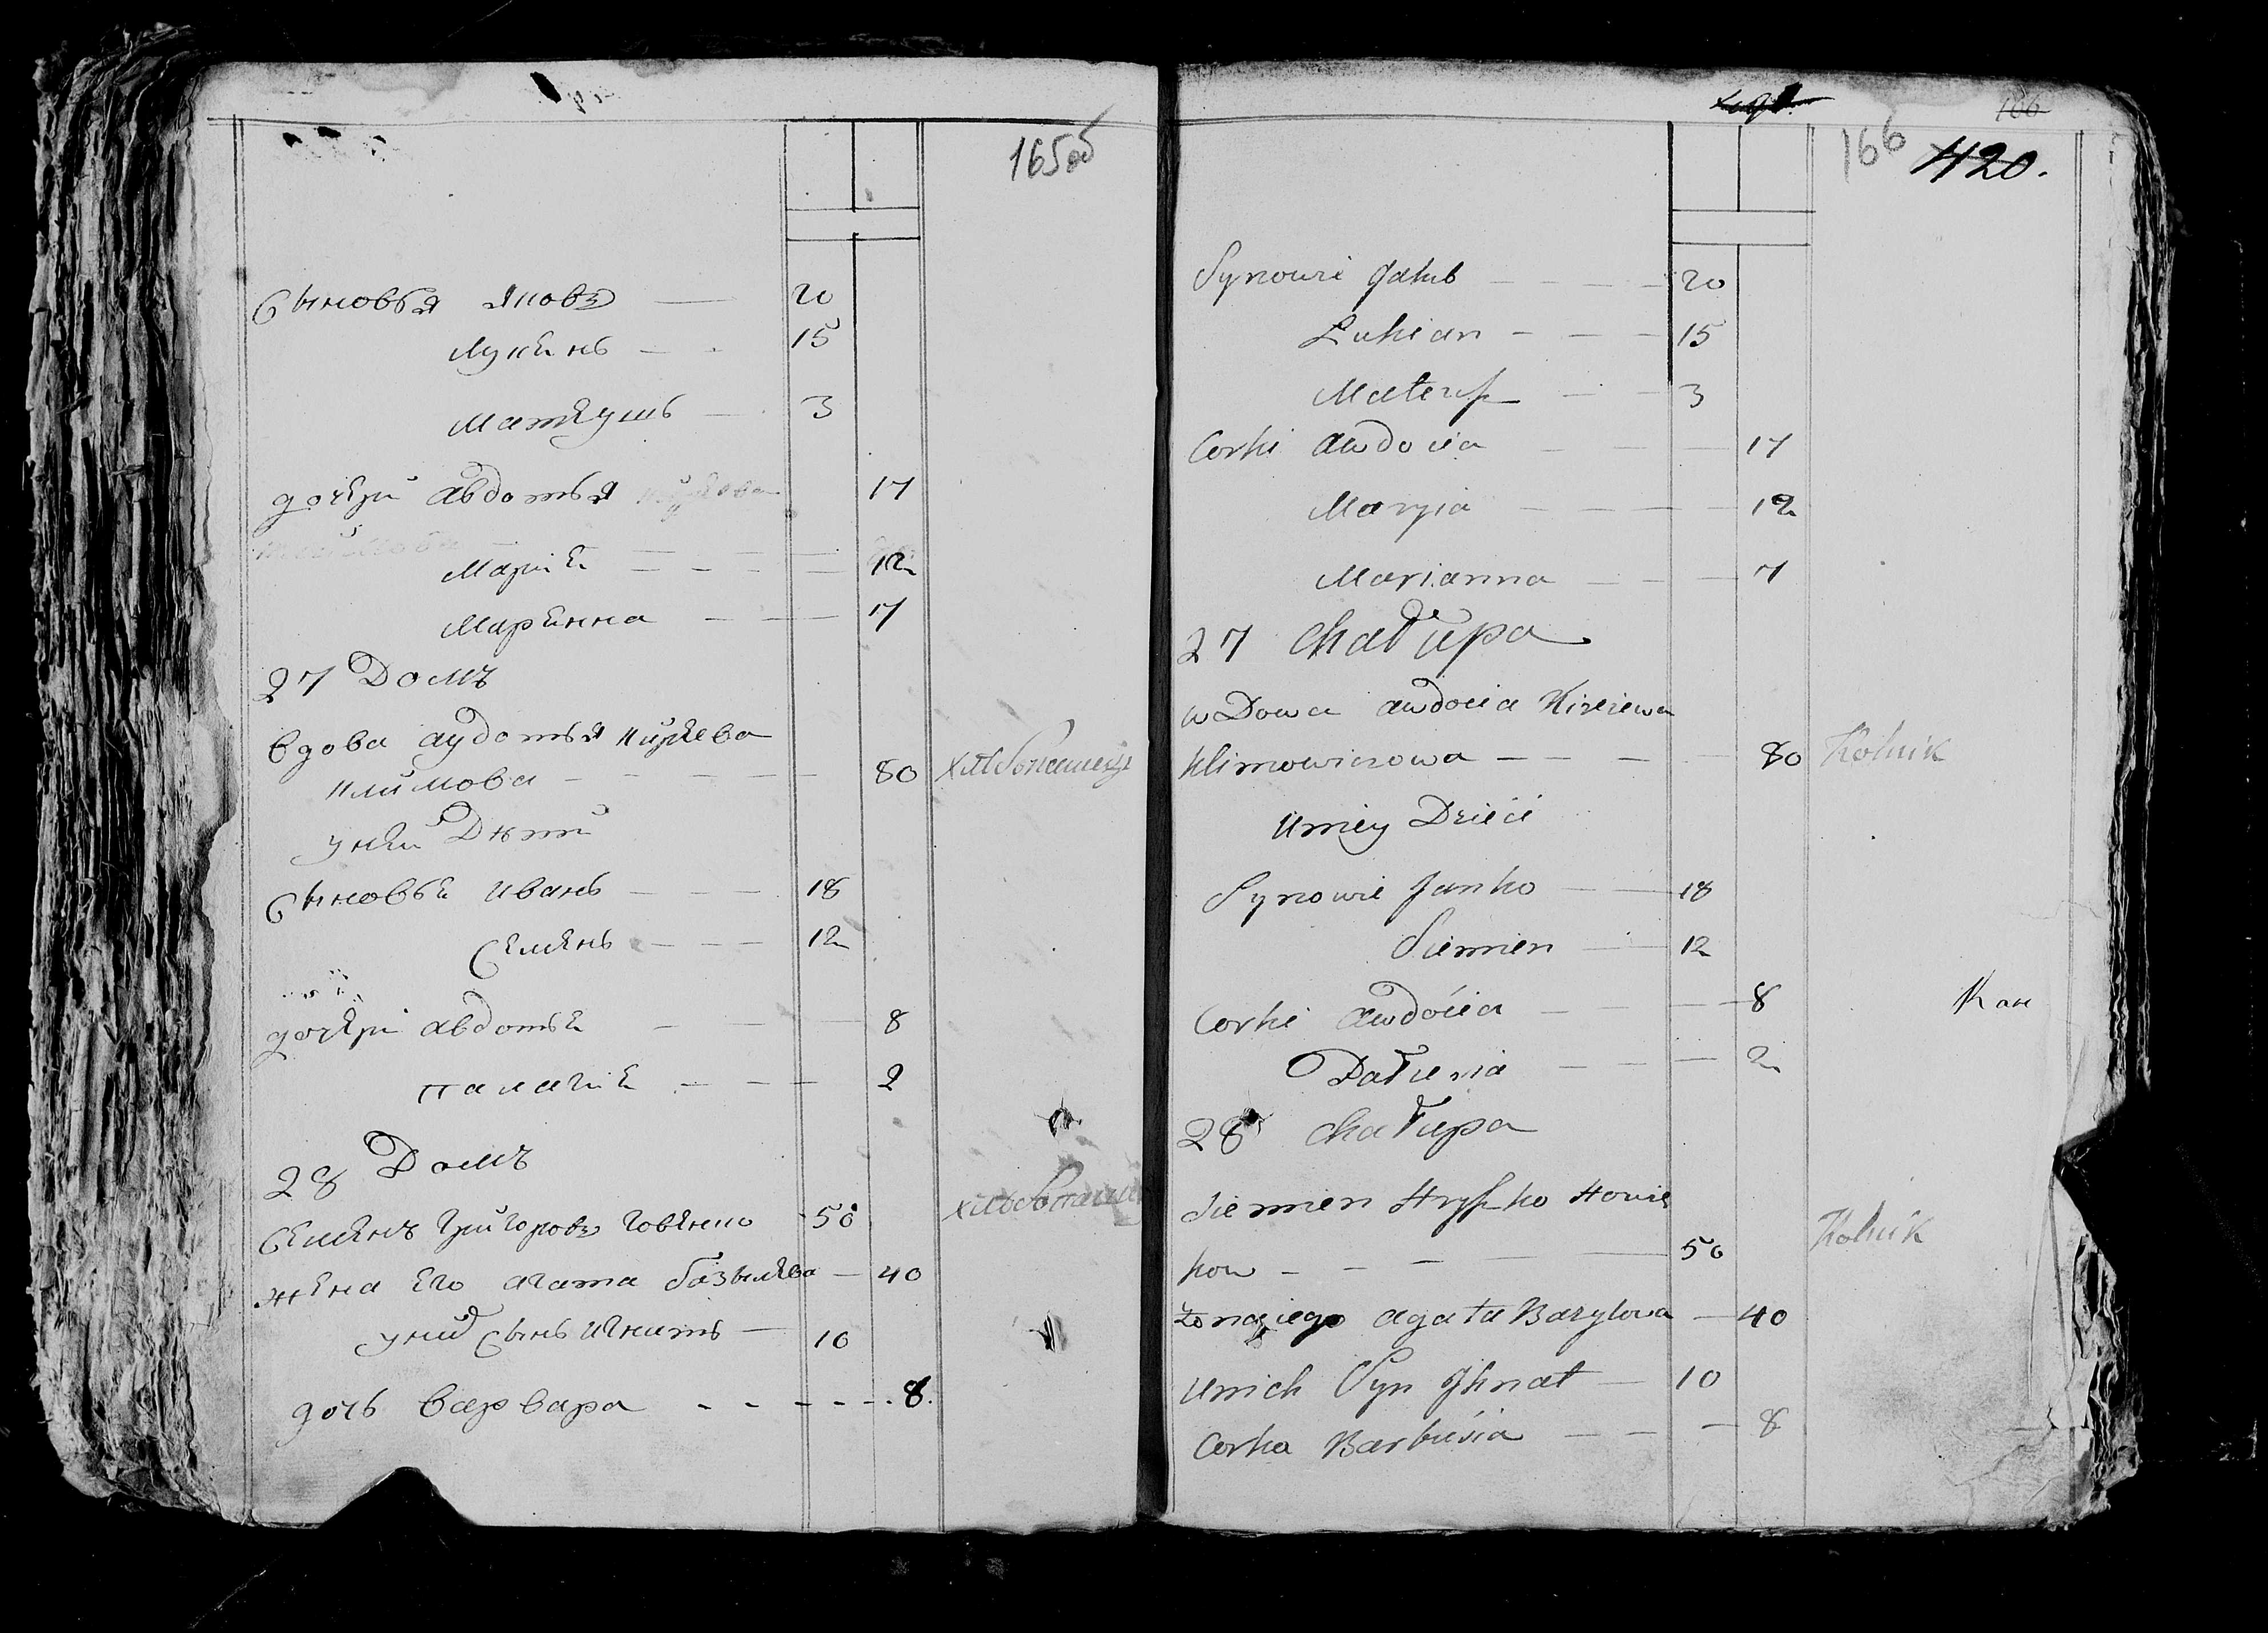 165об
Сыновья Яковъ — 20
Лукянъ — 15
Матеушъ — 3
дочери авдотья 17
Маріа — — — — 12
Марянна — — — 7
27 Домъ
вдова аудотья кирѣева
климова — — — — 80 хлѣбопашецъ
у неи Дѣти
Сыновья иванъ — — — 18
Семенъ — — — 12
дочери авдотья — — — 8
палагія — — — 2
28 Домъ
Семенъ Григоровъ Говенко 50 хлѣбопашец
жена Его агата базылева — 40
у ний Сынъ игнатъ — 10
дочь варвара - - - - - 8.
166
166 420.
Synowie Jakub — — — — 20
Lukian — — — 15
Mateusz — — 3
Corki awdocia — — — 17
Maryia — — — — 12
Marianna — — — 7
27 Chałupa
wDowa awdocia Kireiewa
Klimowiczowa — — — — 80 Rolnik
Uniey Dzieci
Synowie Janko — — 18
Siemien — — 12
Corki awdocia — — — 8
Kан
Pałusia — — — 2
28 Chałupa
Siemien Hryszko Howie
kow — — — — 50 Rolnik
żonaziego agata Bazylowa — 40
Unich Syn Ihnat — 10
Corka Barbusia — — — 8